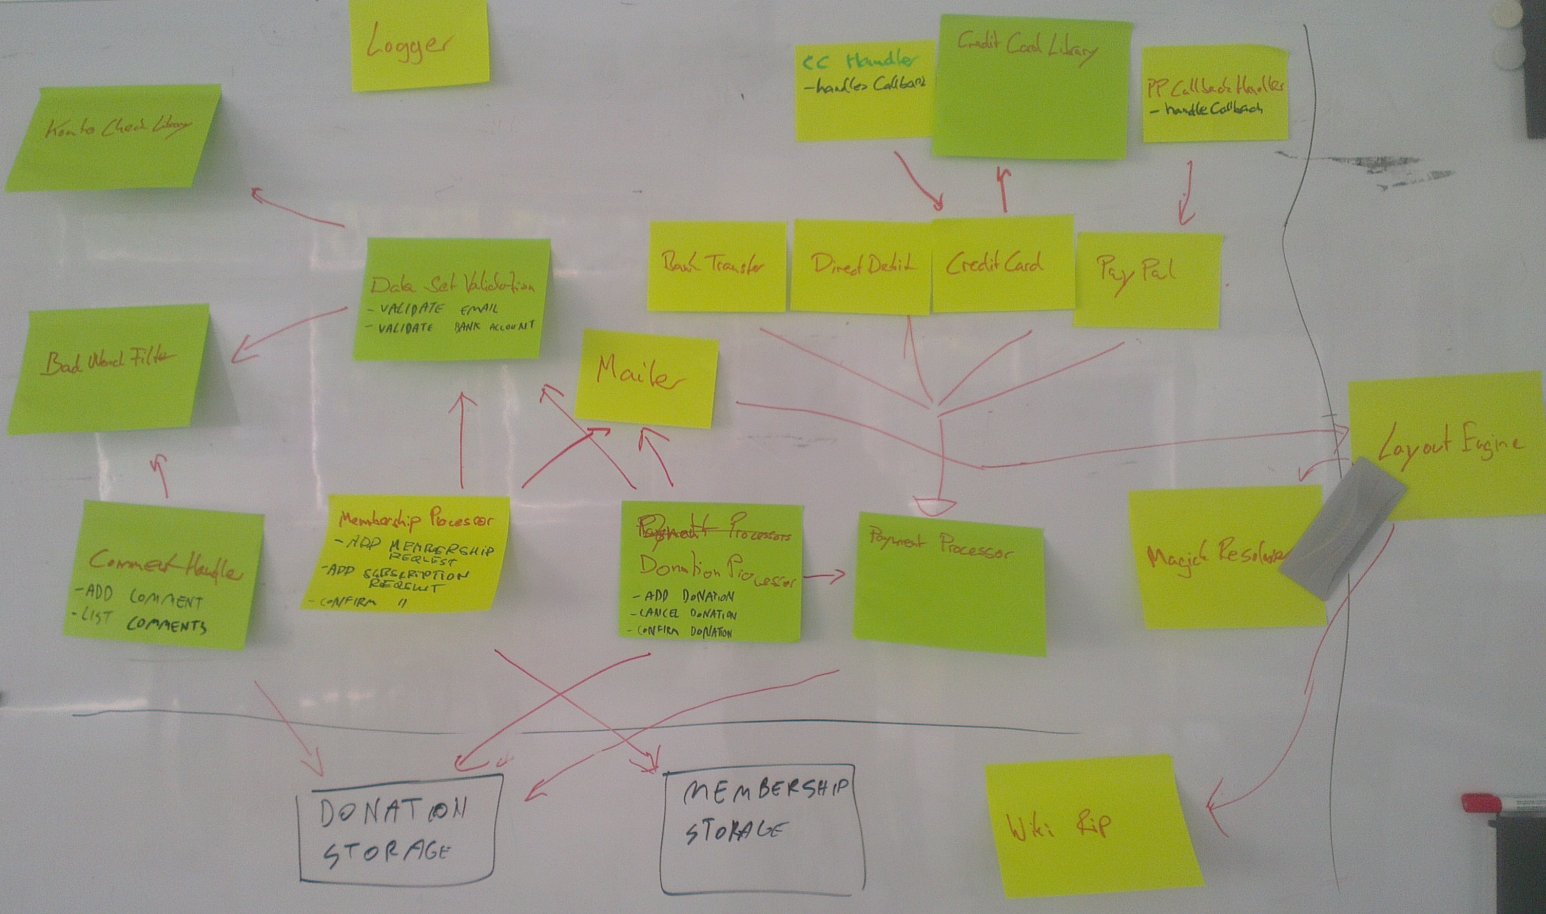 Logger
CC Handler
- handles Callback
Credit Card Library
PP Callback Handler
- handle Callback
Konto Check Library
Data Set Validation
- VALIDATE EMAIL
- VALIDATE BANK ACCOUNT
Bank Transfer
Direct Debit
Credit Card
Pay Pal
Bad Word Filter
Mailer
Layout Engine
Comment Handler
- ADD COMMENT
- LIST COMMENTS
Membership Processor
- ADD MEMBERSHIP
REQUEST
- ADD SUBSCRIPTION
REQUEST
- CONFIRM "
Payment Processors
Donation Processor
- ADD DONATION
- CANCEL DONATION
- CONFIRM DONATION
Payment Processor
Magick
DONATION
STORAGE
MEMBERSHIP
STORAGE
Wiki Rip